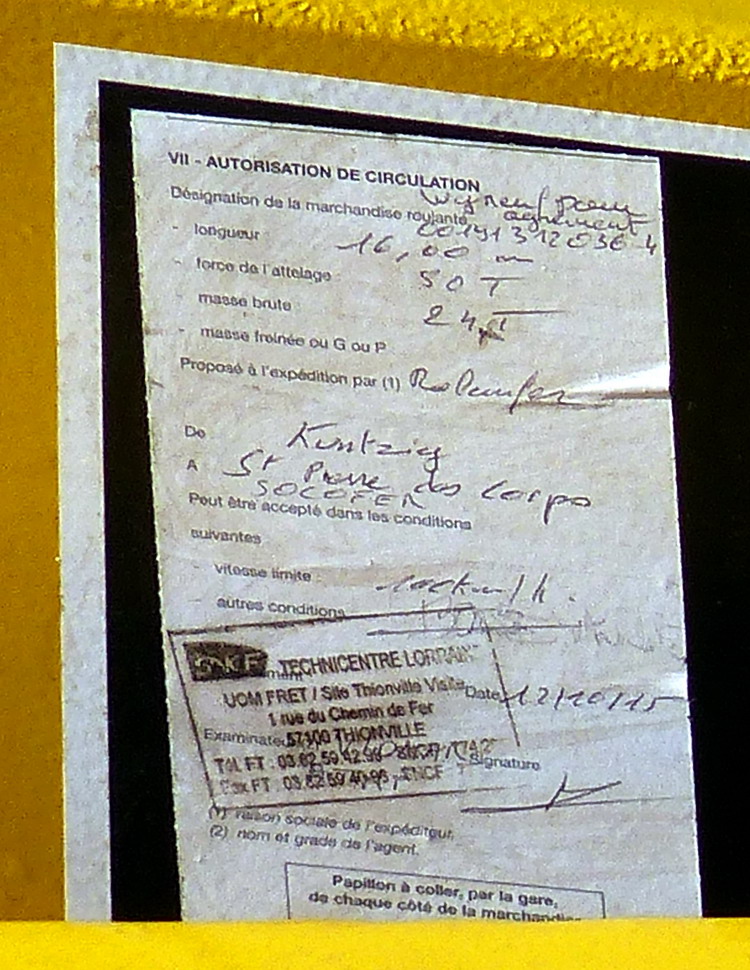 VII - AUTORISATION DE CIRCULATION
Désignation de la marchandise roulante
agrément
- longueur 16,00 m
- force de l'attelage 50 T
- masse brute : 24 T
- masse freinée ou G ou P
Proposé à l'expédition par (1)
De Kuntzig
A St Pierre des Corps
SOCOFER
Peut être accepté dans les conditions
suivantes
- vitesse limite : 100 km/h.
- autres conditions
SNCF TECHNICENTRE LORRAINE
UOM FRET / Site Thionville Visite
Date 12/10/15
1 rue du Chemin de Fer
57100 THIONVILLE
Signature
(1) raison sociale de l'expéditeur,
(2) nom et grade de l'agent.
Papillon à coller, par la gare,
de chaque côté de la marchandise